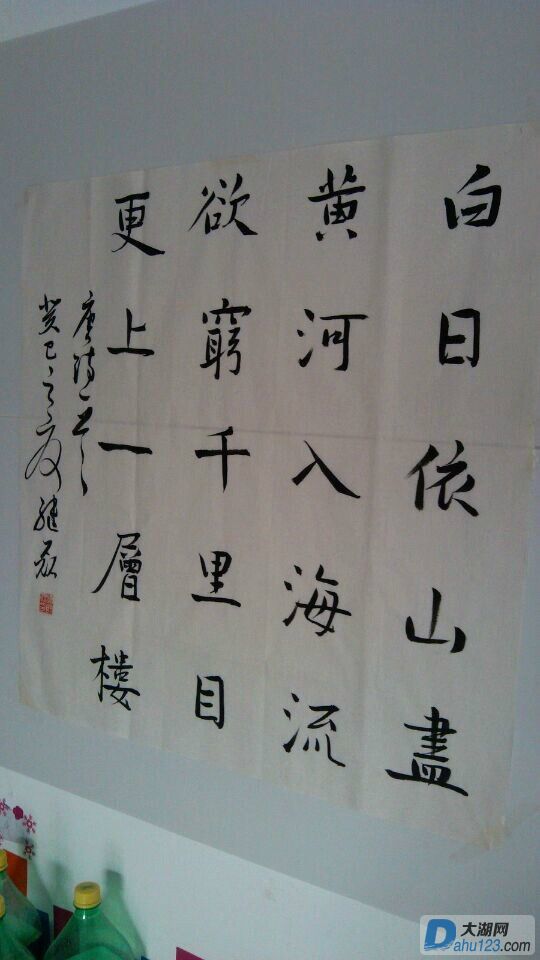 白日依山盡
黄河入海流
欲窮千里目
更上一層楼
唐诗一首
癸巳之夏
大湖网
Dahu123.com